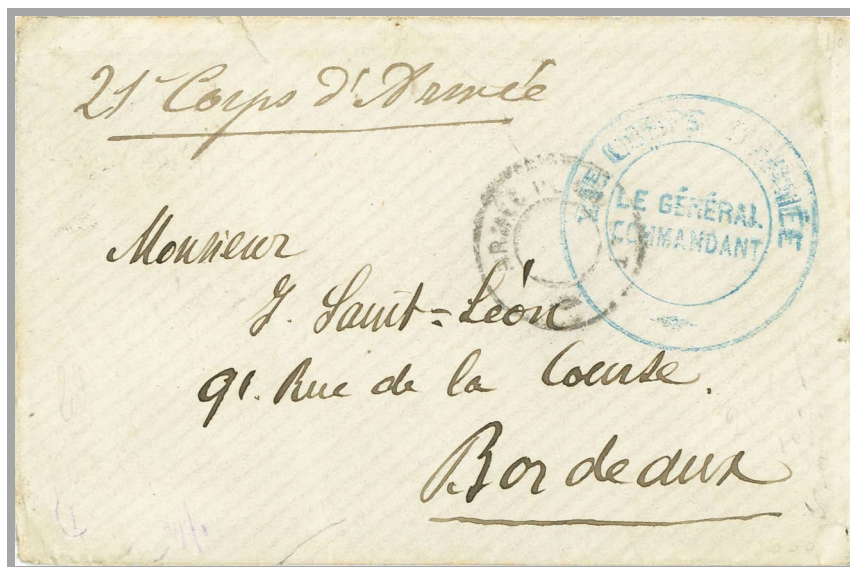 21e Corps d'Armée
CORPS D'ARMÉE
LE GÉNÉRAL
COMMANDANT
ARMÉE
Monsieur
J. Saint-Léon
91. Rue de la Course.
Bordeaux